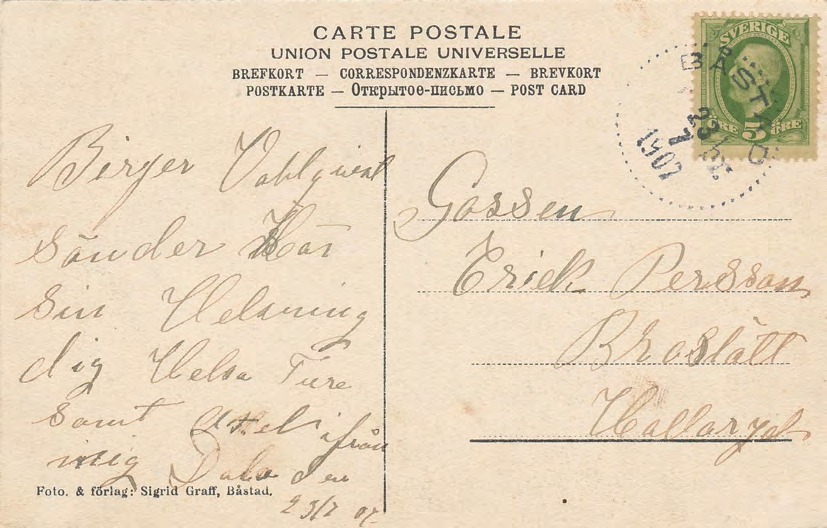 CARTE POSTALE
UNION POSTALE UNIVERSELLE
BREFKORT — CORRESPONDENZKARTE — BREVKORT
POSTKARTE — Открытое-письмо — POST CARD
SVERIGE
ÖRE 5 ÖRE
BÅSTAD
23 7
1907
Birger Vahlqvist
sänder Här
sin Helsning
dig Helsa Ture
samt Axel ifrån
mig den
23/7 07
Gossen
Erick Persson
Broslätt
Hallaryd
Foto. & förlag: Sigrid Graff, Båstad.